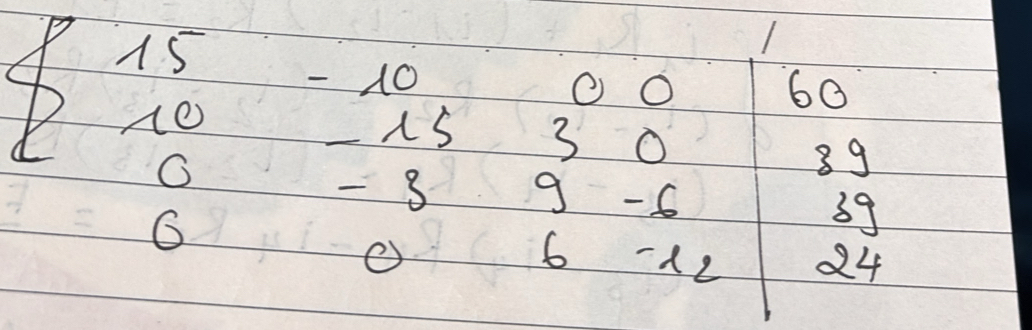 15 - 10 0 0 | 60
10 - 15 3 0 | 39
0 - 3 9 -6 | 39
0 0 6 -12 | 24